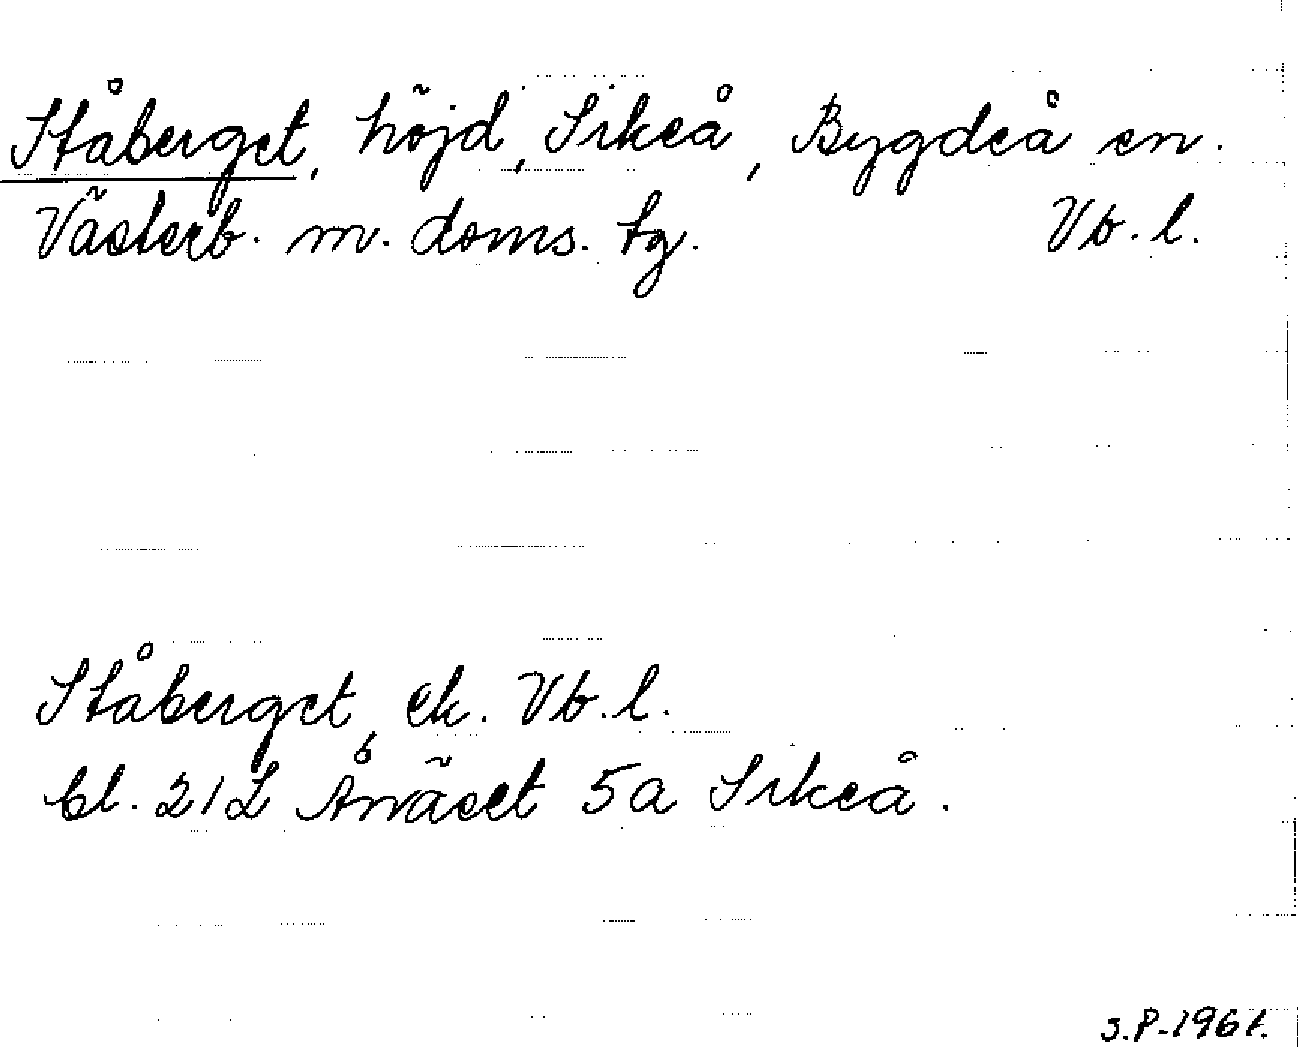 Ståberget, höjd, Sikeå, Bygdeå sn.
Västerb. m. doms. tg. Vb. l.
Ståberget, ek. Vb. l.
bl. 21L Ånäset 5a Sikeå.
S.P. 1961.